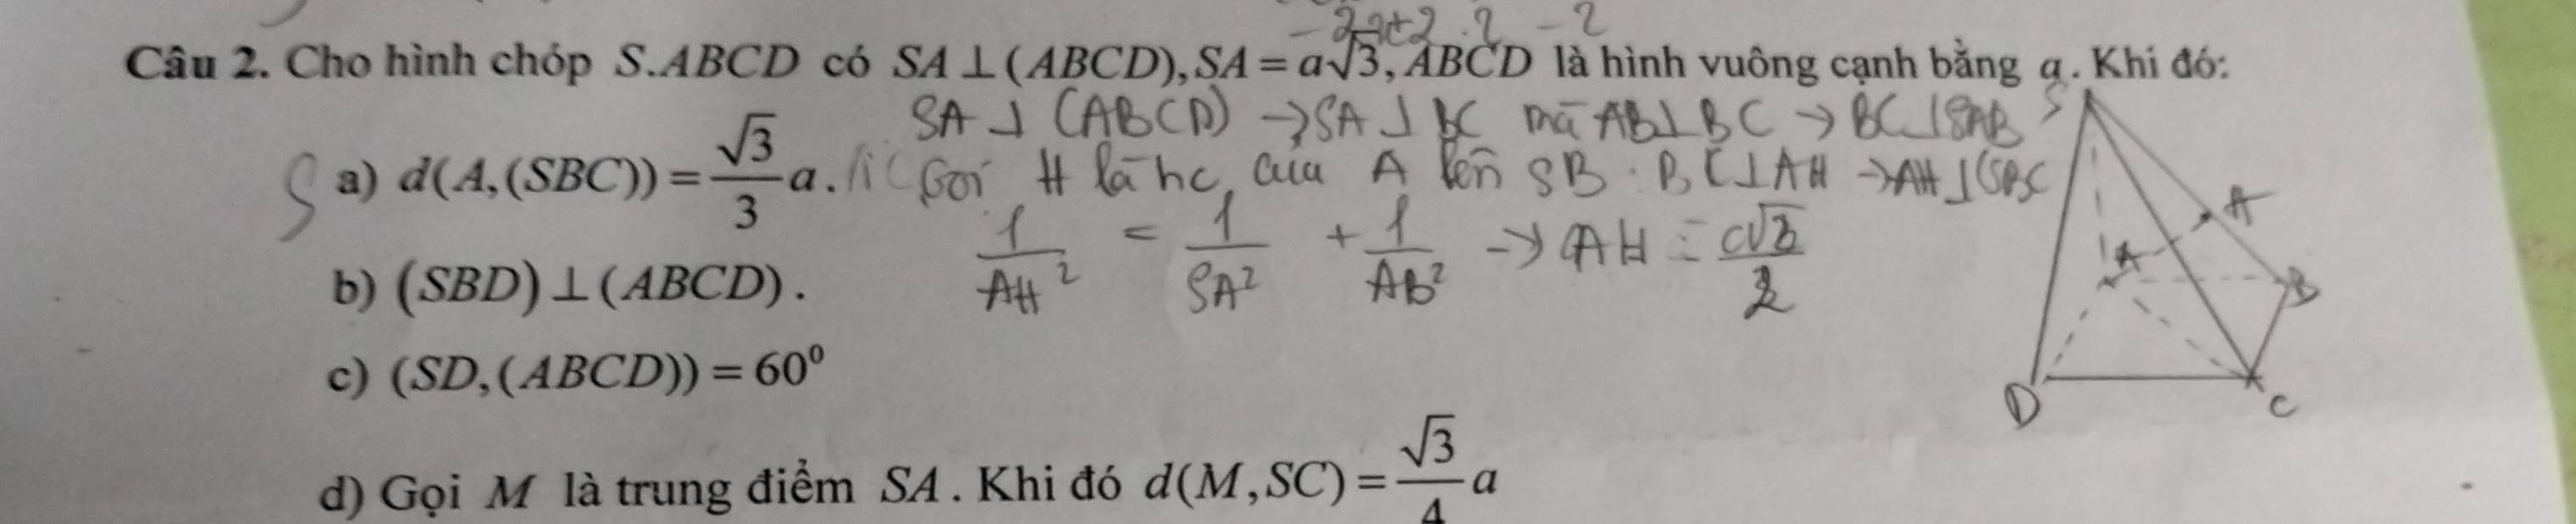 -2a+2.2 -2
Câu 2. Cho hình chóp S.ABCD có SA ⊥ (ABCD), SA = a√3, ABCD là hình vuông cạnh bằng a. Khi đó:
SA ⊥ (ABCD) → SA ⊥ BC mà AB ⊥ BC → BC ⊥ SAB
S a) d(A,(SBC)) = √3/3 a. Gọi H là hc của A lên SB : BC ⊥ AH → AH ⊥ (SBC
1/AH² = 1/SA² + 1/AB² → AH = a√3/2
b) (SBD) ⊥ (ABCD).
c) (SD,(ABCD)) = 60⁰
d) Gọi M là trung điểm SA. Khi đó d(M,SC) = √3/4 a
S
A
B
D
C